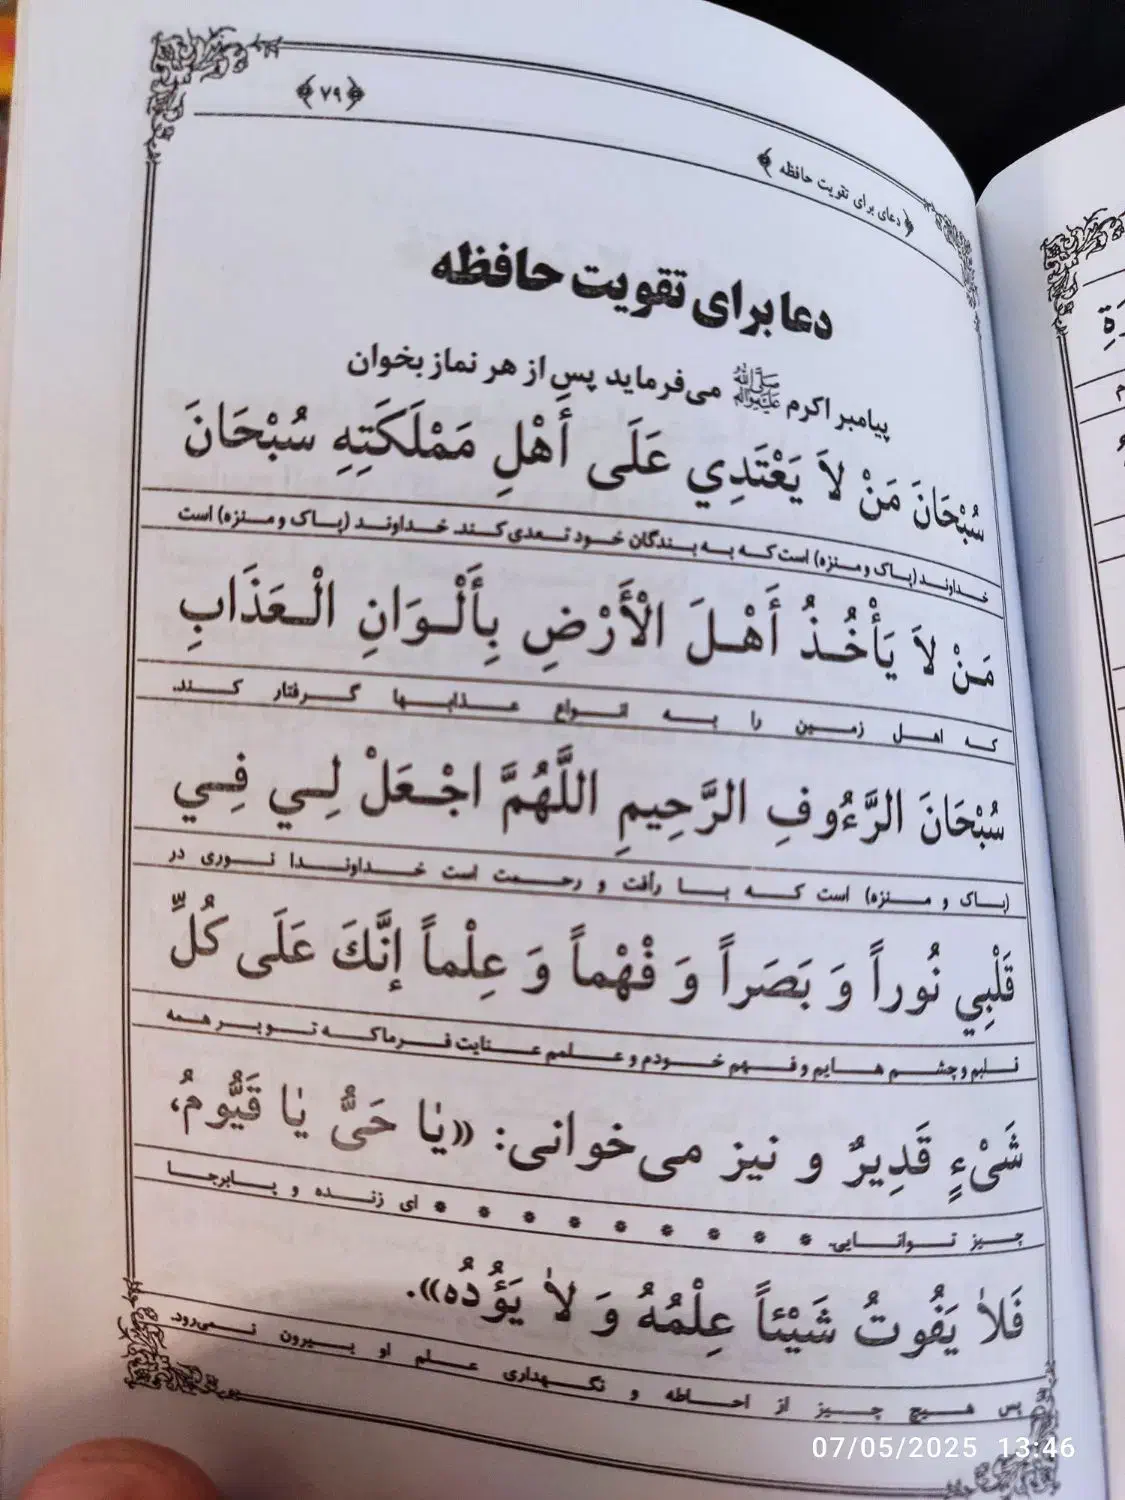 ﴿۷۹﴾
﴿ دعای برای تقویت حافظه ﴾
دعا برای تقویت حافظه
پیامبر اکرم ﷺ می‌فرماید پس از هر نماز بخوان
سُبْحَانَ مَنْ لاَ يَعْتَدِي عَلَى أَهْلِ مَمْلَكَتِهِ سُبْحَانَ
خداوند (پاک و منزه) است که به بندگان خود تعدی کند. خداوند (پاک و منزه) است
مَنْ لاَ يَأْخُذُ أَهْلَ الْأَرْضِ بِأَلْوَانِ الْعَذَابِ
که اهل زمین را به انواع عذابها گرفتار کند.
سُبْحَانَ الرَّءُوفِ الرَّحِيمِ اللَّهُمَّ اجْعَلْ لِي فِي
(پاک و منزه) است که با رأفت و رحمت است خداوندا نوری در
قَلْبِي نُوراً وَ بَصَراً وَ فَهْماً وَ عِلْماً إِنَّكَ عَلَى كُلِّ
قلبم و چشم هایم و فهم خودم و علمم عنایت فرما که تو بر همه
شَىْءٍ قَدِيرٌ و نیز می‌خوانی: «يٰا حَىُّ يٰا قَيُّومُ،
چیز توانایی. * * * * * * * * * ای زنده و پابرجا
فَلاٰ يَفُوتُ شَيْئاً عِلْمُهُ وَ لاٰ يَؤُدُه».
پس هیچ چیز از احاطه و نگهداری علم او بیرون نمی‌رود.
07/05/2025 13:46